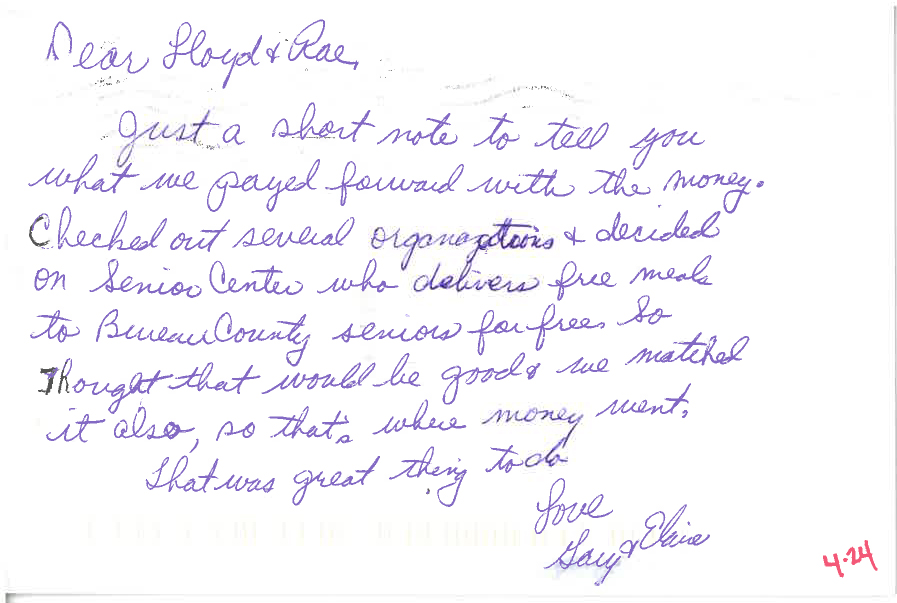 Dear Lloyd & Rae,
Just a short note to tell you
what we payed forward with the money.
Checked out several organazations & decided
on Senior Center who delivers free meals
to Bureau County seniors for free. So
Thought that would be good & we matched
it also, so that's where money went.
That was great thing to do
Love
Gary & Elaine
4-24